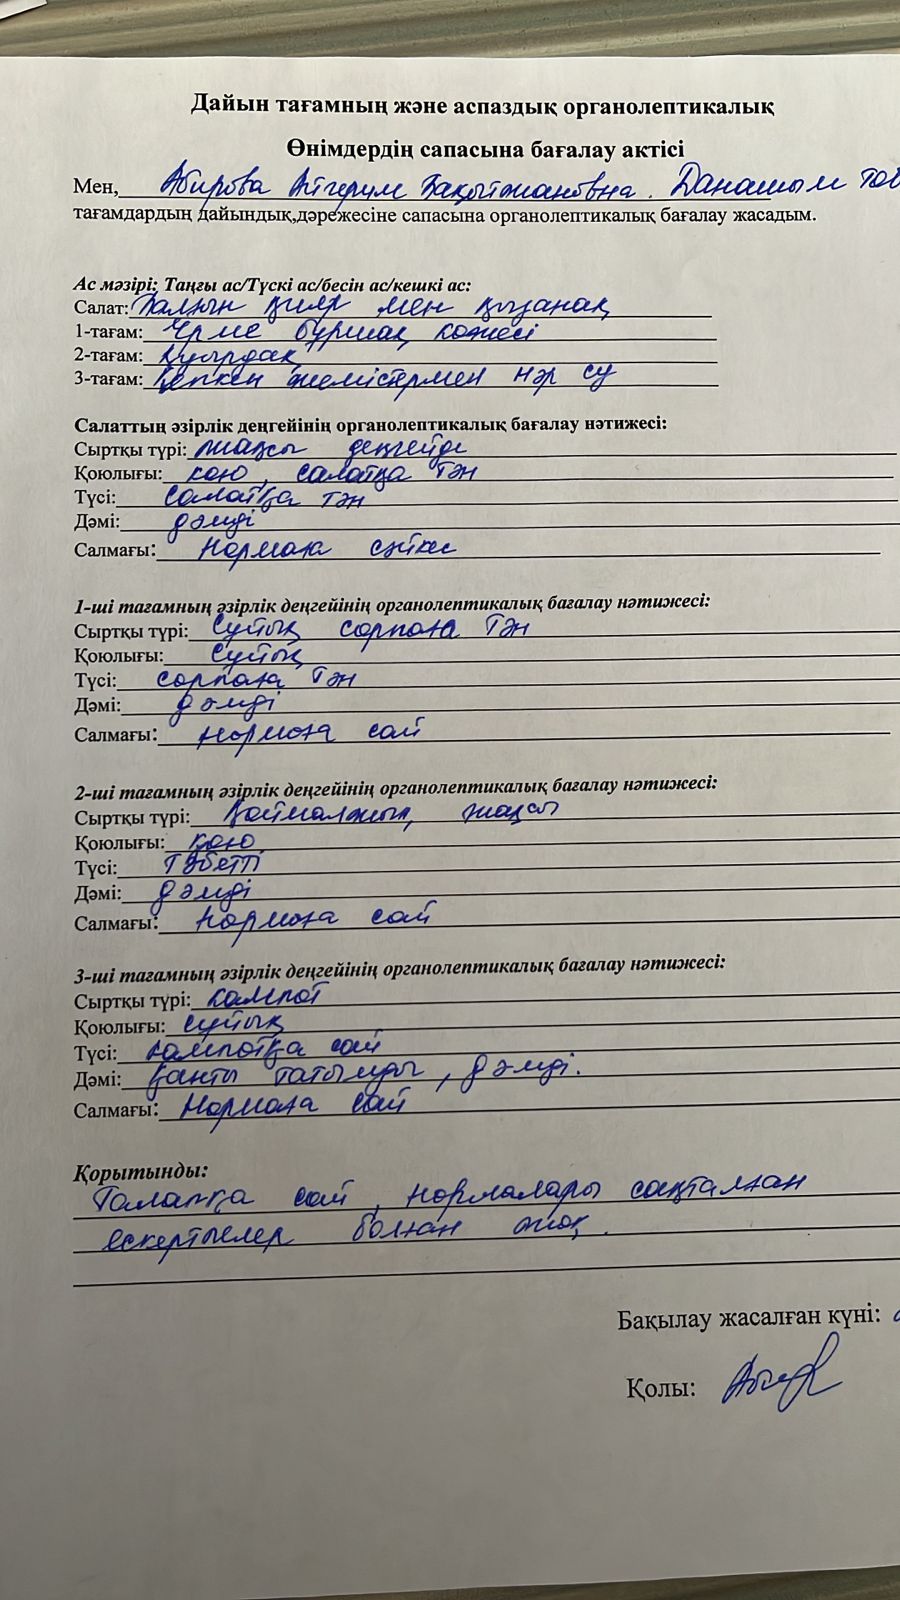 Дайын тағамның және аспаздық органолептикалық
Өнімдердің сапасына бағалау актісі
Мен, Абирова Айгерим Бақытжановна. Данашым тов
тағамдардың дайындық,дәрежесіне сапасына органолептикалық бағалау жасадым.
Ас мәзірі: Таңғы ас/Түскі ас/бесін ас/кешкі ас:
Салат: Балғын қияр мен қызанақ
1-тағам: Үрме бұршақ көжесі
2-тағам: Қуырдақ
3-тағам: Кепкен жемістермен нәр су
Салаттың әзірлік деңгейінің органолептикалық бағалау нәтижесі:
Сыртқы түрі: жақсы деңгейде
Қоюлығы: қою, салатқа тән
Түсі: салатқа тән
Дәмі: дәмді
Салмағы: Нормаға сәйкес
1-ші тағамның әзірлік деңгейінің органолептикалық бағалау нәтижесі:
Сыртқы түрі: Сұйық сорпаға тән
Қоюлығы: Сұйық
Түсі: сорпаға тән
Дәмі: дәмді
Салмағы: нормаға сай
2-ші тағамның әзірлік деңгейінің органолептикалық бағалау нәтижесі:
Сыртқы түрі: Қоймалжың, жақсы
Қоюлығы: қою
Түсі: Тәбетті
Дәмі: дәмді
Салмағы: Нормаға сай
3-ші тағамның әзірлік деңгейінің органолептикалық бағалау нәтижесі:
Сыртқы түрі: кампот
Қоюлығы: сұйық
Түсі: кампотқа сай
Дәмі: қанты татымды, дәмді.
Салмағы: Нормаға сай
Қорытынды:
Талапқа сай, нормалары сақталған
ескертпелер болған жоқ.
Бақылау жасалған күні:
Қолы: